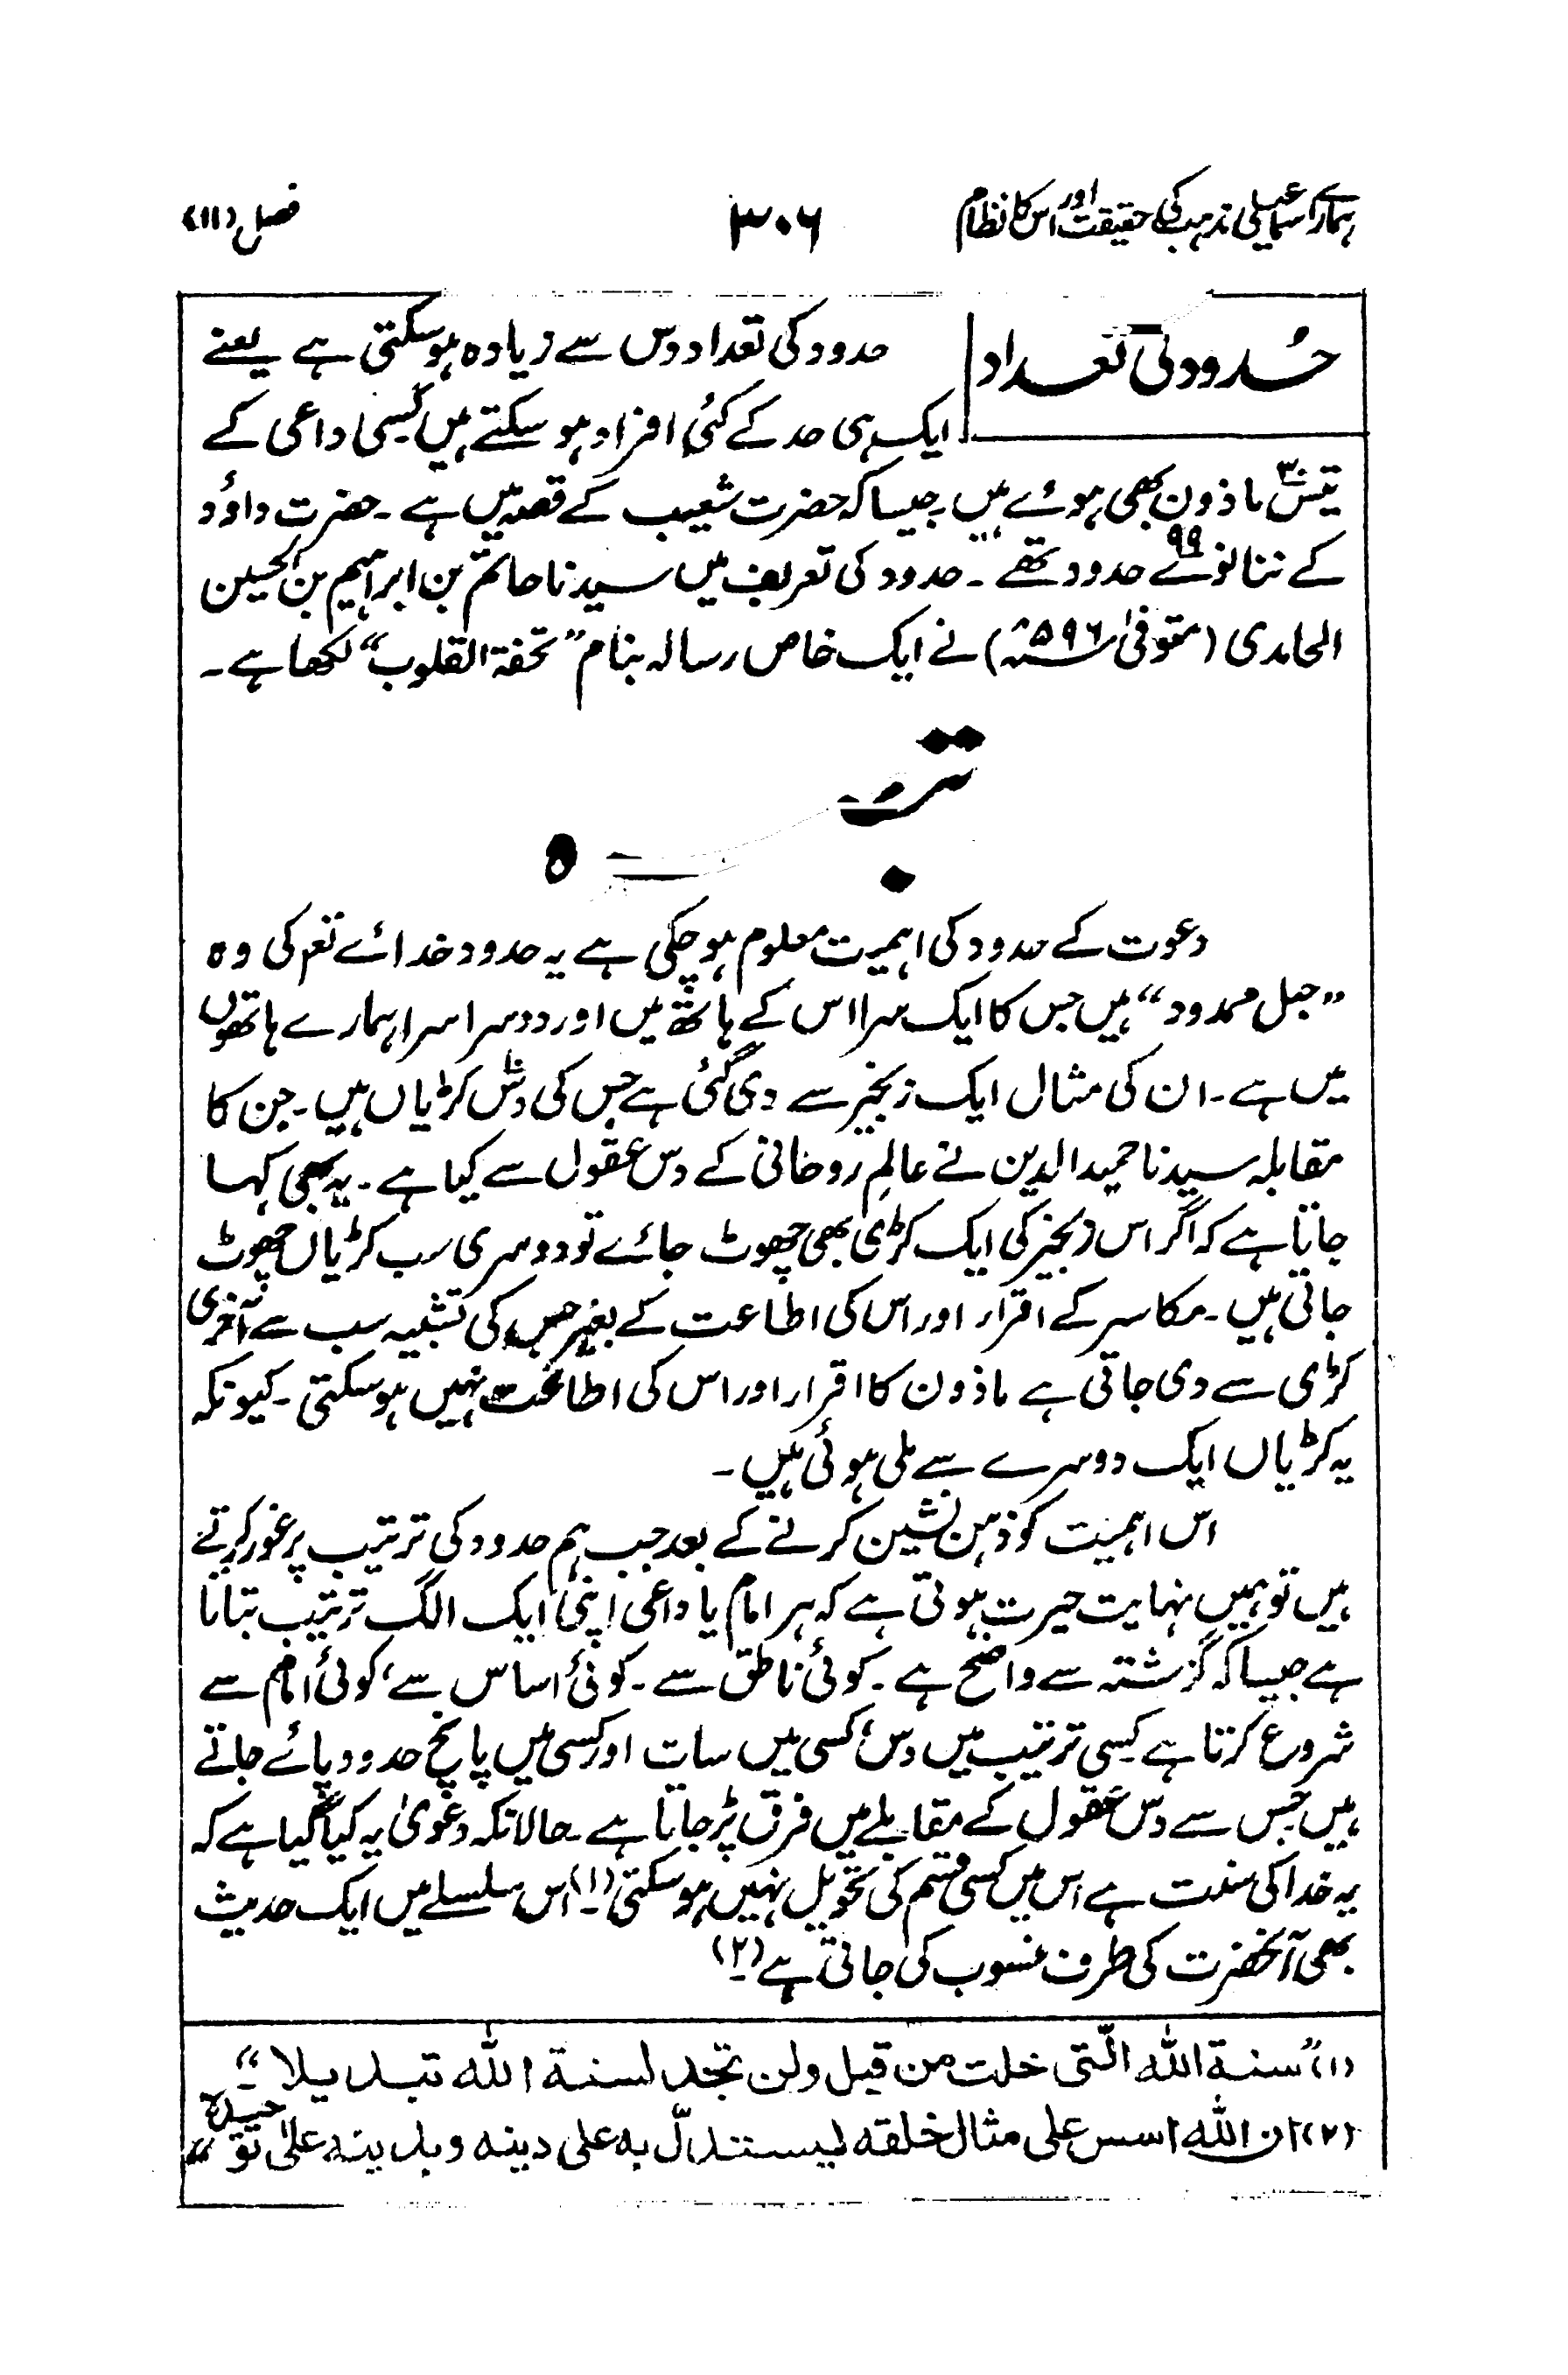 ہمارے اسماعیلی مذہب کی حقیقت اور اس کا نظام ۳۰۶ فصل (۱۱)
حدود کی تعداد
حدود کی تعداد دس سے زیادہ ہوسکتی ہے یعنے
ایک ہی حد کے کئی افراد ہوسکتے ہیں کسی داعی کے
تیس۳۰ ماذون بھی ہوئے ہیں جیسا کہ حضرت شعیب کے قصہ میں ہے ۔ حضرت داوٗد
کے ننانوے۹۹ حدود تھے ۔ حدود کی تعریف میں سیدنا حاتم بن ابراہیم بن الحسین
الحامدی (متوفیٰ ۵۹۶ھ) نے ایک خاص رسالہ بنام ”تحفۃ القلوب“ لکھا ہے ۔
تبصرہ
دعوت کے حدود کی اہمیت معلوم ہوچکی ہے یہ حدود خدائے تعم کی وہ
”حبل ممدود“ ہیں جس کا ایک سرا اس کے ہاتھ میں اور دوسرا سرا ہمارے ہاتھوں
میں ہے ۔ ان کی مثال ایک زنجیر سے دی گئی ہے جس کی دس۱۰ کڑیاں ہیں ۔ جن کا
مقابلہ سیدنا حمید الدین نے عالمِ روحانی کے دس عقول سے کیا ہے ۔ یہ بھی کہا
جاتا ہے کہ اگر اس زنجیر کی ایک کڑی بھی چھوٹ جائے تو دوسری سب کڑیاں چھوٹ
جاتی ہیں ۔ مکاسر کے اقرار اور اس کی اطاعت کے بغیر جس کی تشبیہ سب سے آخری
کڑی سے دی جاتی ہے ماذون کا اقرار اور اس کی اطاعت نہیں ہوسکتی ۔ کیونکہ
یہ کڑیاں ایک دوسرے سے ملی ہوئی ہیں ۔
اس اہمیت کو ذہن نشین کرنے کے بعد جب ہم حدود کی ترتیب پر غور کرتے
ہیں تو ہمیں نہایت حیرت ہوتی ہے کہ ہر امام یا داعی اپنی ایک الگ ترتیب بتاتا
ہے جیسا کہ گزشتہ سے واضح ہے ۔ کوئی ناطق سے ۔ کوئی اساس سے، کوئی امام سے
شروع کرتا ہے کسی ترتیب میں دس، کسی میں سات اور کسی میں پانچ حدود پائے جاتے
ہیں جس سے دس عقول کے مقابلے میں فرق پڑ جاتا ہے ۔ حالانکہ دعویٰ یہ کیا گیا ہے کہ
یہ خدا کی سنت ہے اس میں کسی قسم کی تحویل نہیں ہوسکتی (۱) اس سلسلے میں ایک حدیث
بھی آنحضرت کی طرف منسوب کی جاتی ہے (۲)
(۱) ”سنة الله الّتى خلت من قبل ولن تجد لسنة الله تبديلا“
(۲) ان الله اسس على مثال خلقه ليستدلّ به على دينه وبدينه على توحيده“